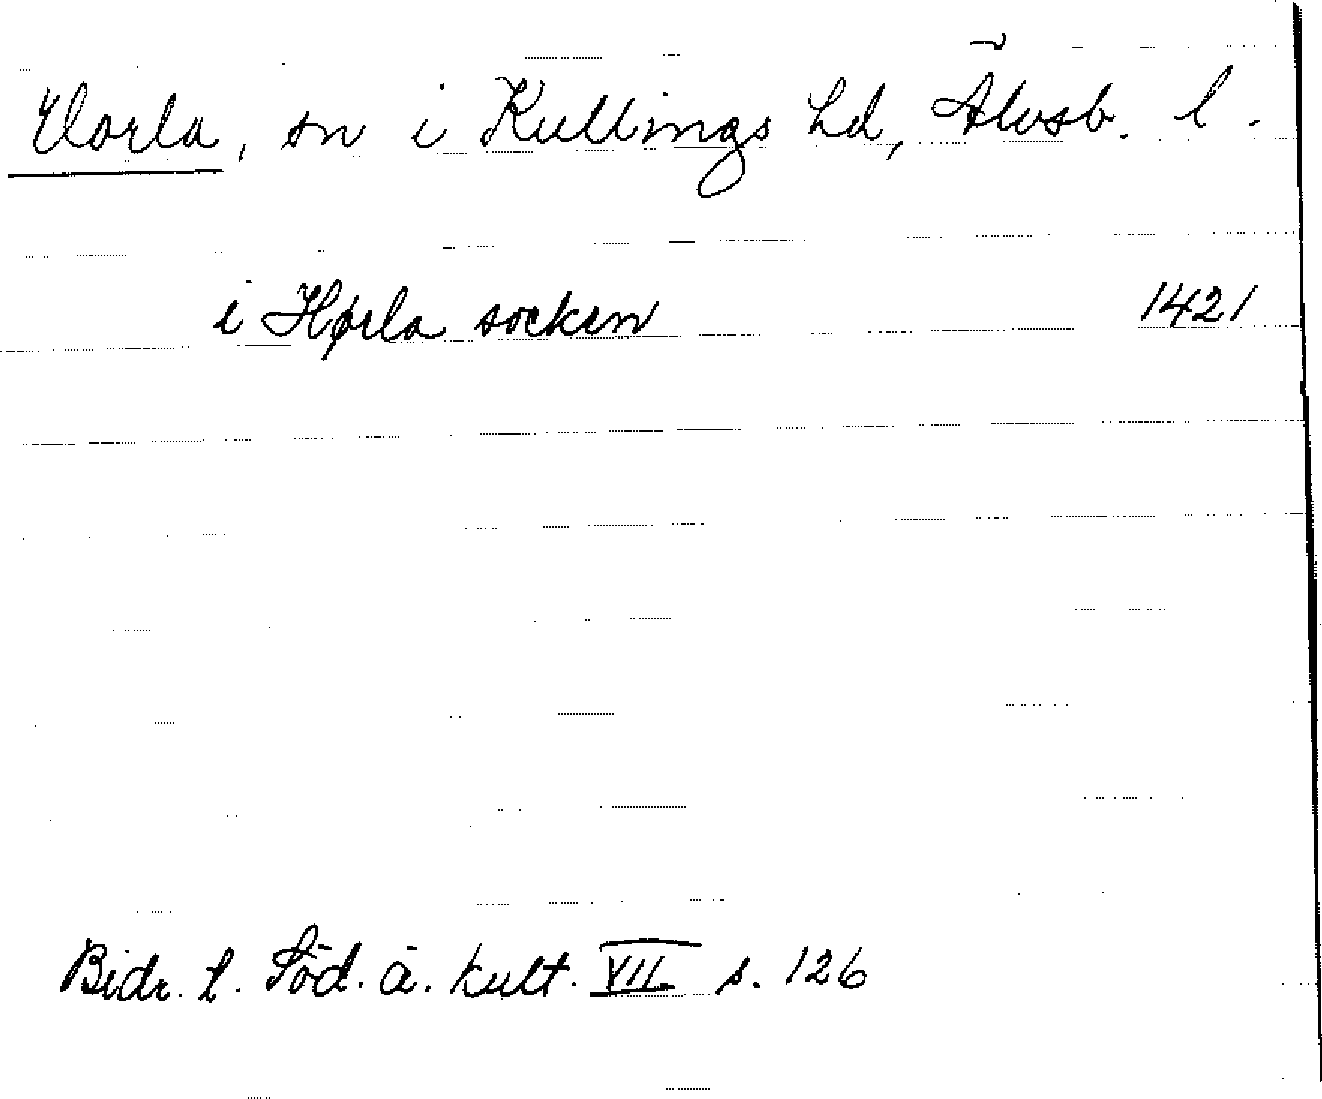 Horla, sn i Kullings hd, Älvsb. l.
i Hørla socken 1421
Bidr. t. Söd. ä. kult. VII. s. 126